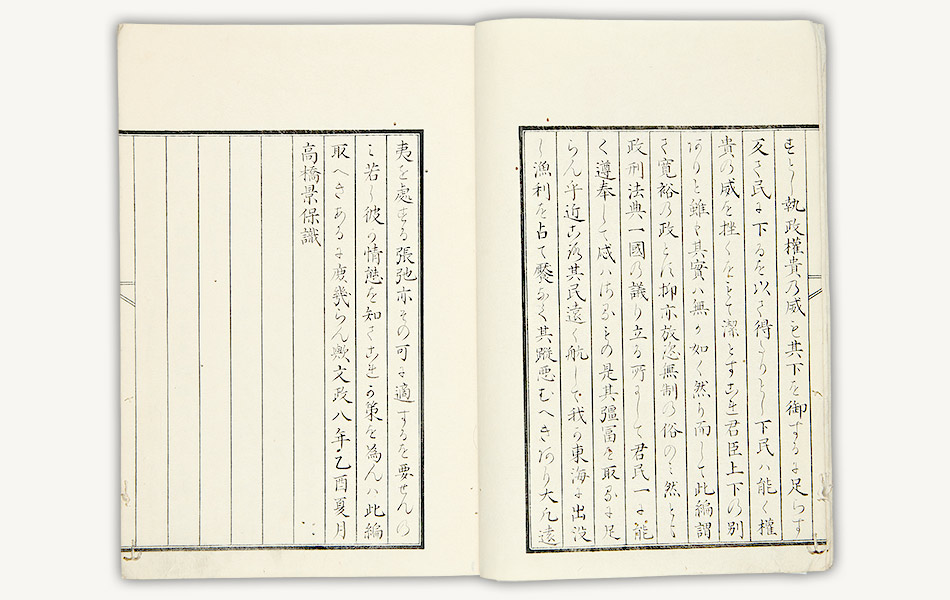 すとし執政權貴乃威も其下を御するに足らす
交て民に下るを以て得たりとし下民ハ能く權
貴の威を挫くをもて潔とす故に君臣上下の別
ありと雖も其實ハ無か如く然り而して此編謂
て寛裕の政とハ抑亦放恣無制の俗のミ然とも
政刑法典一國の議り立る所にして君民一に能
く遵奉して
其彊冨を取るに足
らん乎近ころ其民遠く航して我か東海に出没
し漁利を占て
其蹤悪むへきあり大凡遠
夷を處する張弛亦その可に適するを要せんの
ミ若し彼の情態を知てこれか策を為んハ此編
取へきあるに庶幾らん歟文政八年乙酉夏月
高橋景保識